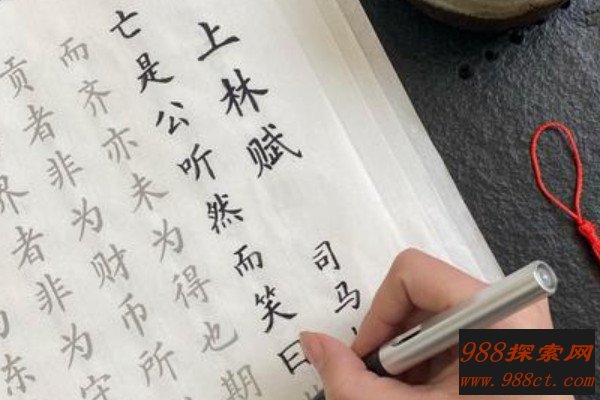 上林赋
司马
亡是公听然而笑曰
而齐亦未为得也期
贡者非为财币所
界者非为守
东
988探索网
www.988ct.com